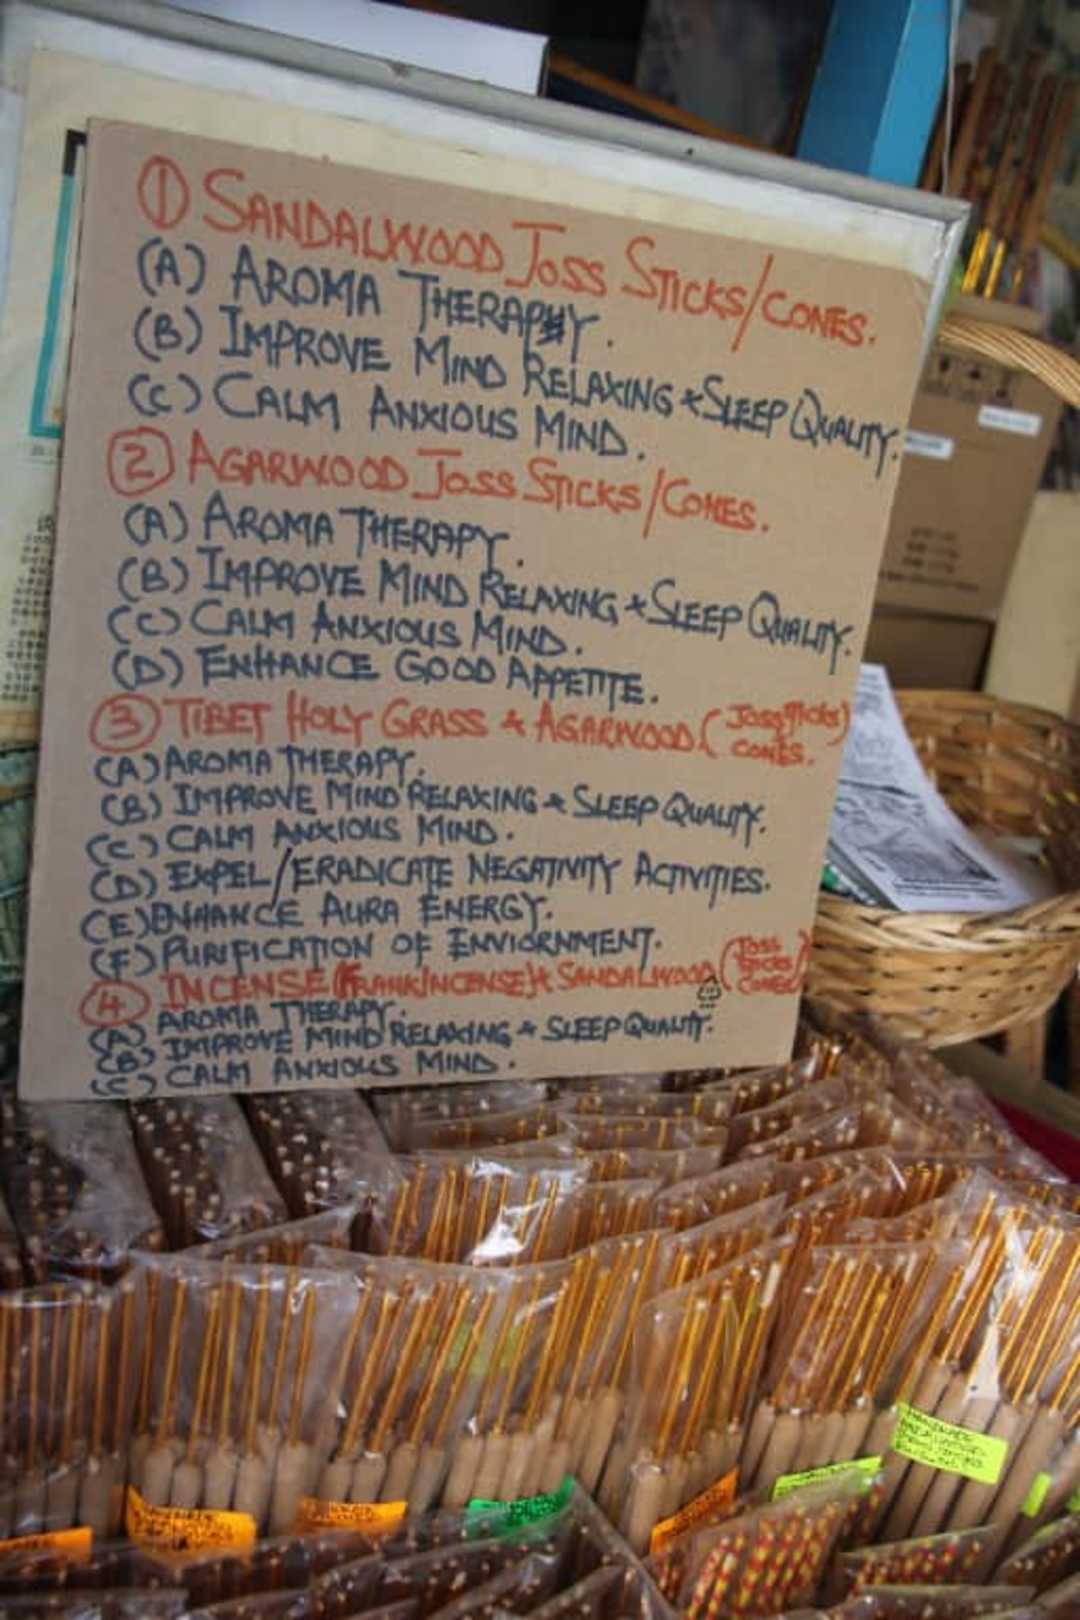 ① SANDALWOOD JOSS STICKS/CONES.
(A) AROMA THERAPY.
(B) IMPROVE MIND RELAXING & SLEEP QUALITY.
(C) CALM ANXIOUS MIND.
② AGARWOOD JOSS STICKS/CONES.
(A) AROMA THERAPY.
(B) IMPROVE MIND RELAXING & SLEEP QUALITY.
(C) CALM ANXIOUS MIND.
(D) ENHANCE GOOD APPETITE.
③ TIBET HOLY GRASS & AGARWOOD (JOSS STICKS)
CONES.
(A) AROMA THERAPY.
(B) IMPROVE MIND RELAXING & SLEEP QUALITY.
(C) CALM ANXIOUS MIND.
(D) EXPEL/ERADICATE NEGATIVITY ACTIVITIES.
(E) ENHANCE AURA ENERGY.
(F) PURIFICATION OF ENVIORNMENT.
④ INCENSE (FRANKINCENSE) & SANDALWOOD (JOSS
STICKS/
CONES)
(A) AROMA THERAPY.
(B) IMPROVE MIND RELAXING & SLEEP QUALITY.
(C) CALM ANXIOUS MIND.